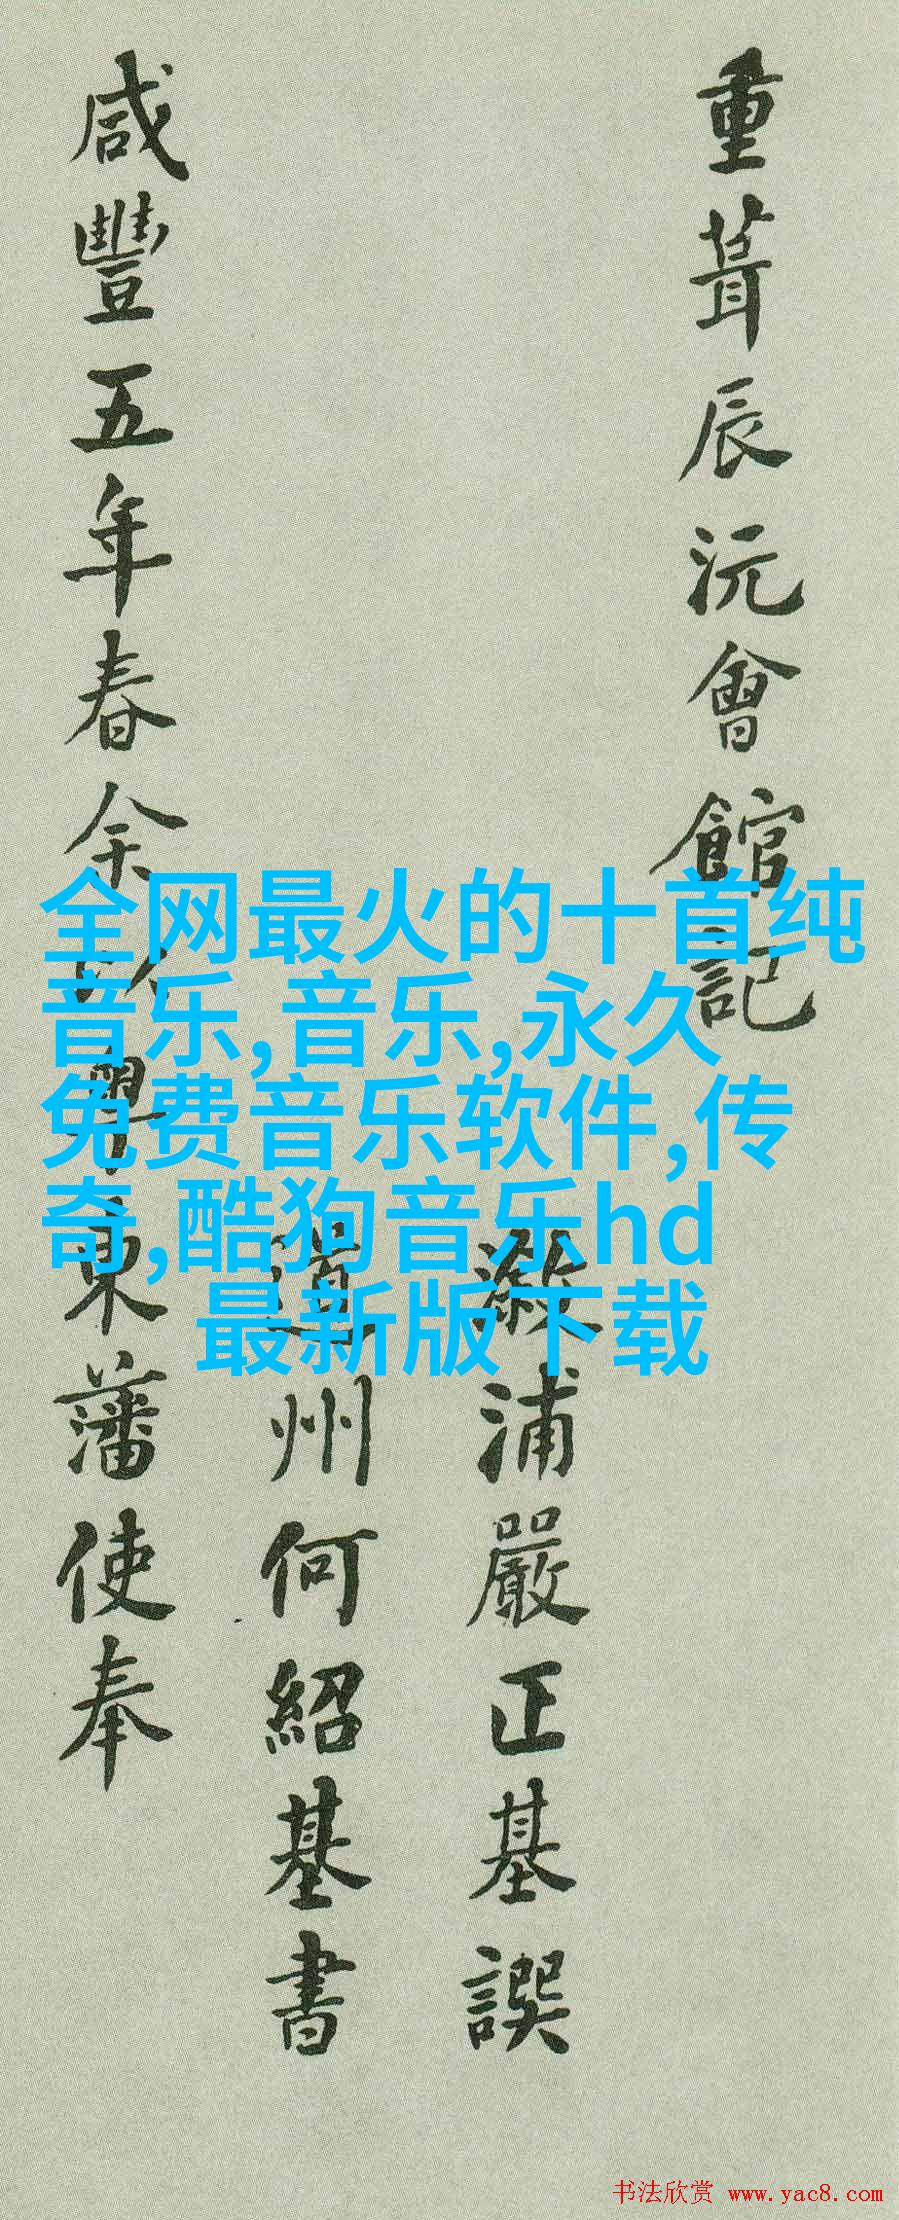 重葺辰沅會館記
漵浦嚴正基譔
道州何紹基書
咸豐五年春余以粤東藩使奉
全网最火的十首纯
音乐,音乐,永久
免费音乐软件,传
奇,酷狗音乐hd
最新版下载
书法欣赏 www.yac8.com